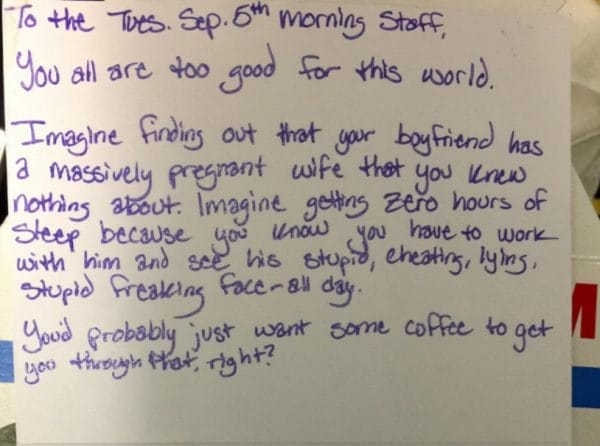 To the Tues. Sep. 5th morning Staff,
You all are too good for this world.
Imagine finding out that your boyfriend has
a massively pregnant wife that you knew
nothing about. Imagine getting zero hours of
sleep because you know you have to work
with him and see his stupid, cheating, lying,
stupid freaking face - all day.
You'd probably just want some coffee to get
you through that, right?
M